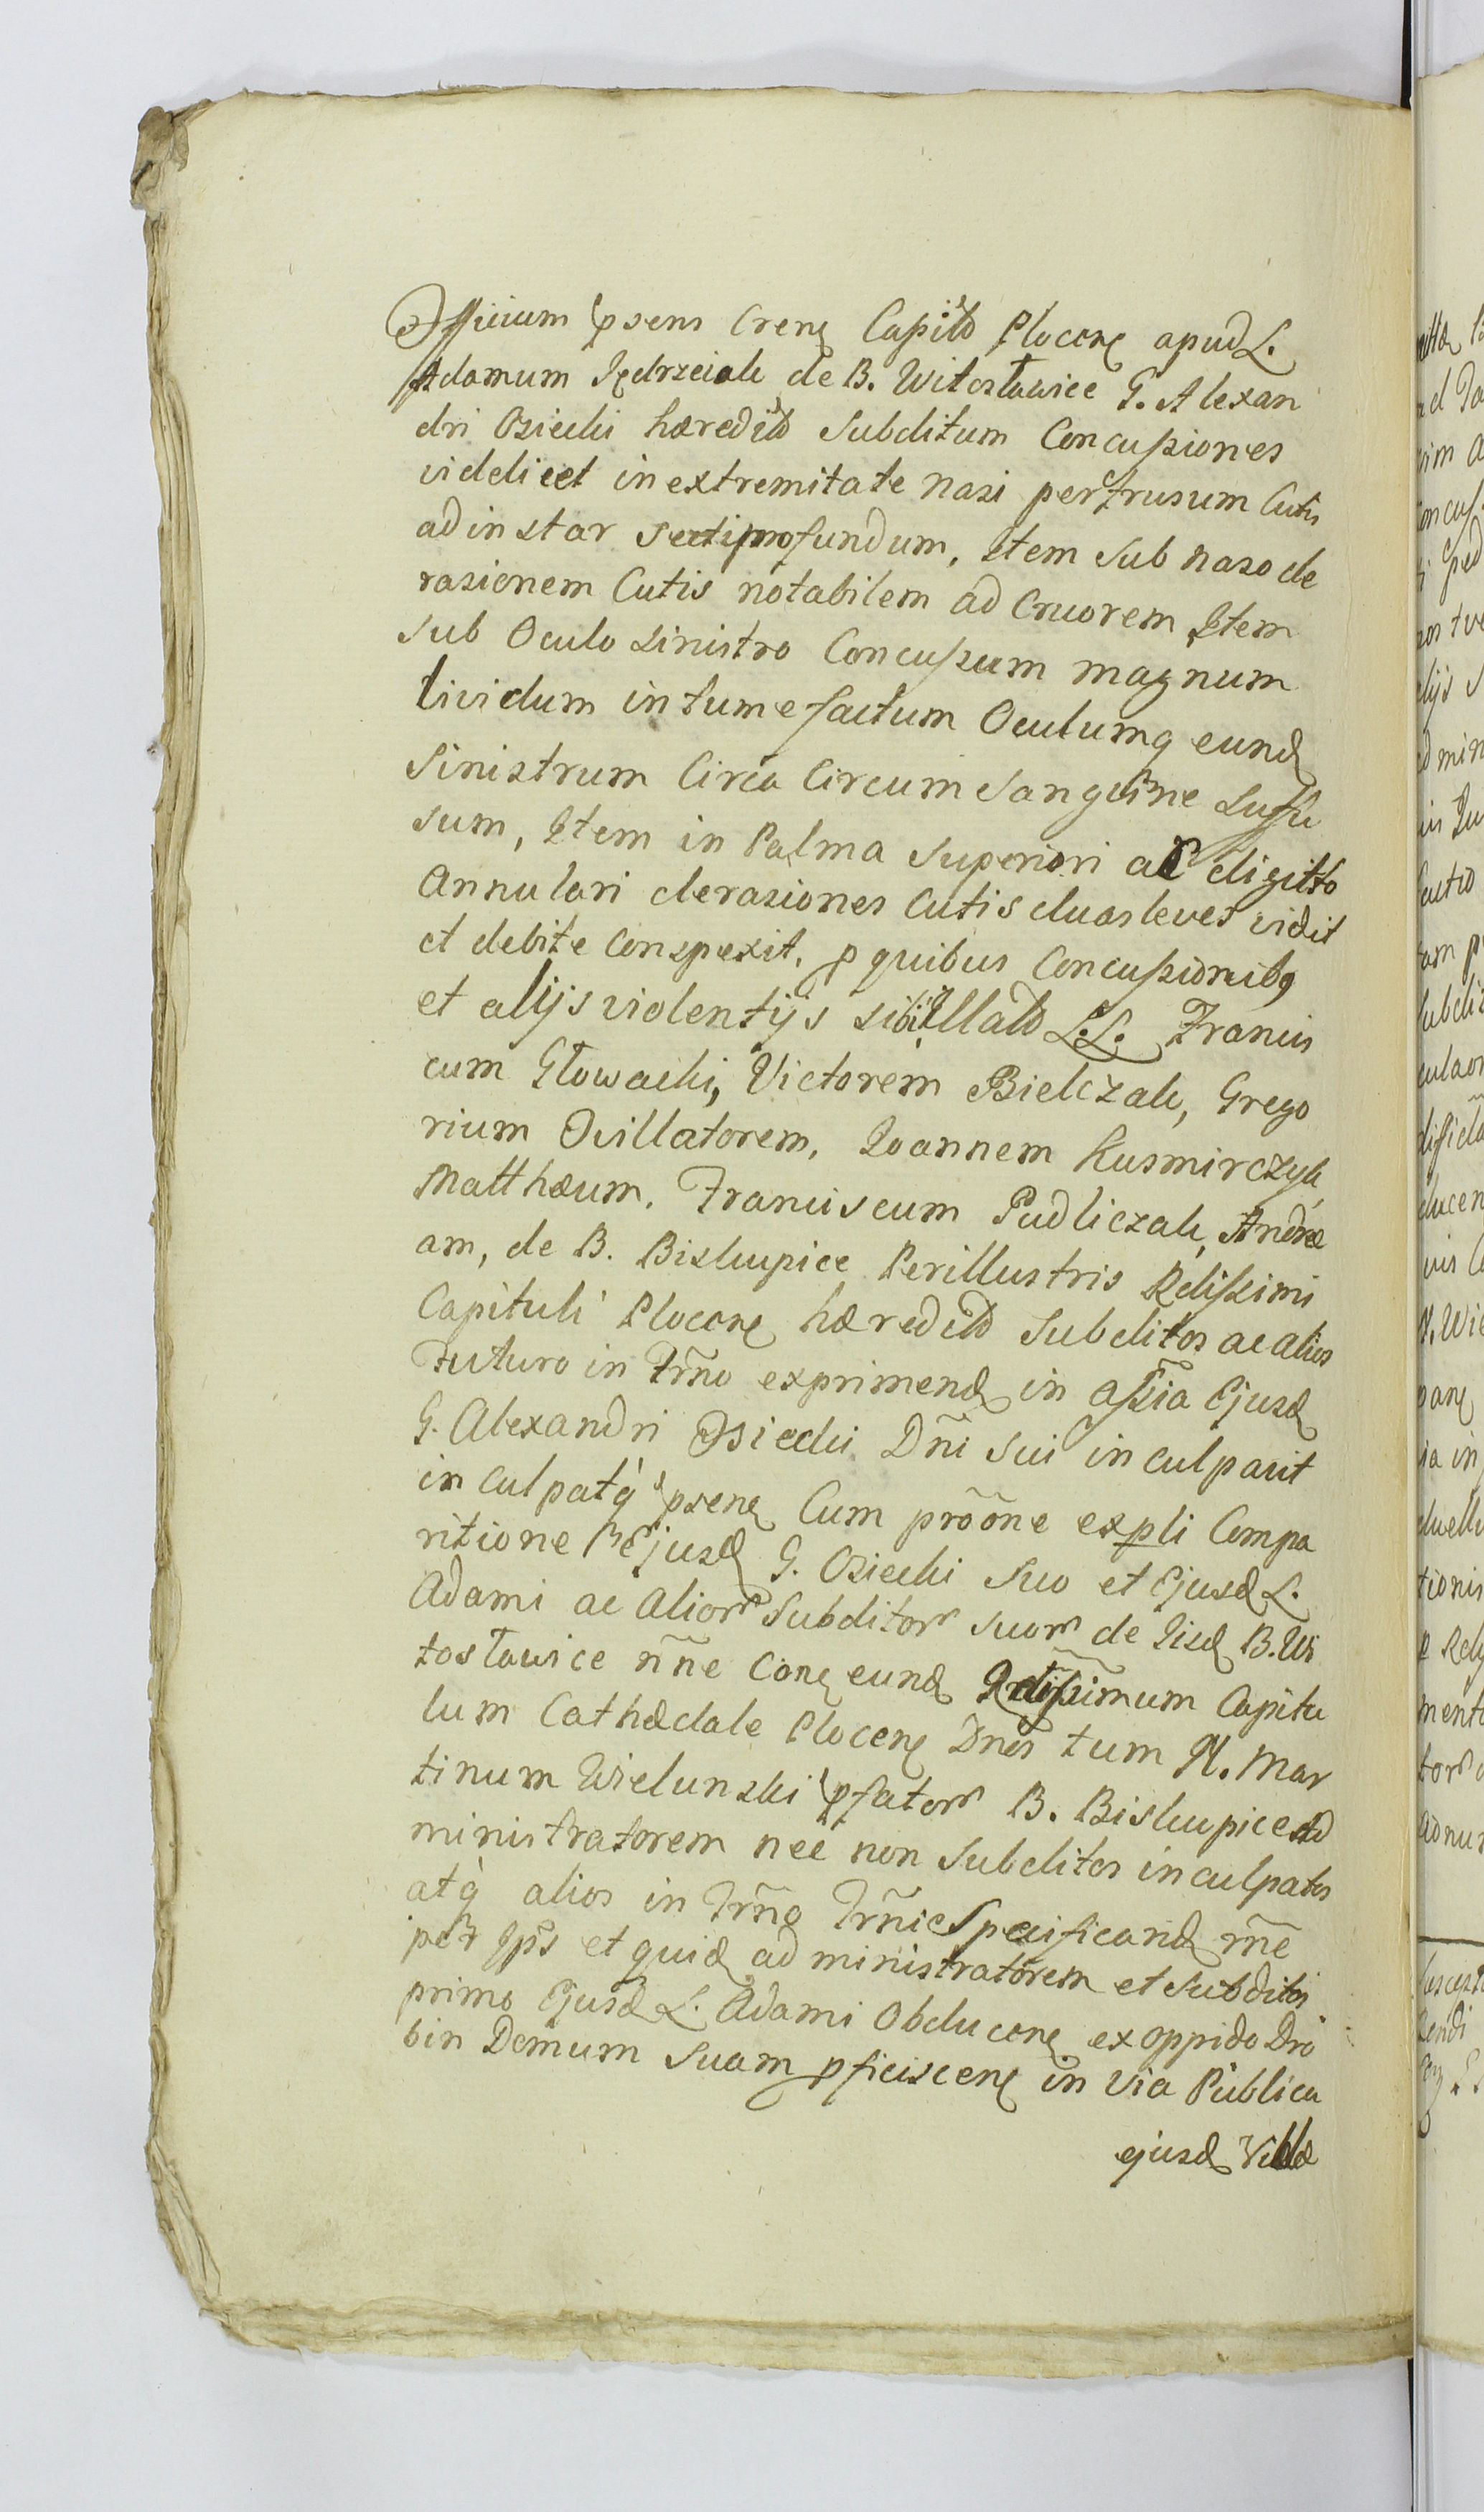 Officium psens Crens Capitlo Plocens apud L.
Adamum Jędrzeiak de B. Witosławice G. Alexan
dri Osiecki hæredito Subditum Concussiones
videlicet in extremitate nasi pertrusum Cutis
ad instar secti profundum, Item sub naso de
rasionem Cutis notabilem ad Cruorem Item
sub Oculo sinistro Concussum magnum
lividum intumefactum Oculumq eund
Sinistrum Circa Circum sanguine suffu
sum, Item in Palma Superiori ac digitto
Annulari derasiones Cutis duas leves vidit
et debite Conspexit. p quibus Concussionibq
et alijs violentijs sibi illato L.L. Francis
cum Głowacki, Victorem Bielczak, Grego
rium Ovillatorem, Joannem Kusmirczyk
Matthæum, Franciscum Pudliczak, Andræ
am, de B. Biskupice Perillustris Rdissimi
Capituli Plocens hæredito Subditos ac alios
Futuro in Trno exprimend in assia Ejusd
G. Alexandri Osiecki Dni sui inculpavit
inculpatq psens Cum proone expli Compa
ritione Ejusd G. Osiecki suo et Ejusd L.
Adami ac Alior Subditor suor de Iisd B. Wi
tosławice nne Cons eund Rdissimum Capitu
lum Cathedale Plocens Dnos tum N. Mar
tinum Wielunski pfator B. Biskupice ad
ministratorem nec non Subditos inculpatos
atq alios in Trno Trnie Specificand rne
per Ips et quid administratorem et subditos
primo Ejusd L. Adami Obducons ex oppido Dro
bin Domum suam pficiscens in via Publica
ejusd Villæ